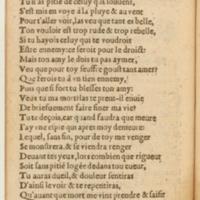 Tu n'as pitié de celuy qui souuent,
S'est mis en voye à la pluye & au vent
Pour t'aller voir, las veu que tant es belle,
Ton vouloir est trop rude & trop rebelle,
Si tu hayois celuy qui te voudroit
Estre ennemy: ce seroit pour le droict:
Mais ton amy le dois tu pas aymer,
Veu que pour toy souffre goust tant amer?
Que ferois tu à vn tien ennemy,
Puis que si fort tu blesses ton amy:
Veux tu ma mort: las te prent-il enuie
De briefuement faire finer ma vie?
Tu te deçois, car quand faudra que meure
T'ay vne espie qui apres moy demeure:
Lequel, sans fin, pour de toy me venger
Se monstrera, & se viendra renger
Deuant tes yeux, lors combien que rigueur
Soit sans pitié logée dedans ton cueur,
Tu auras dueil, & douleur sentiras
D'ainsi le voir & te repentiras,
Qu'auant que mort me vint prendre & saisir